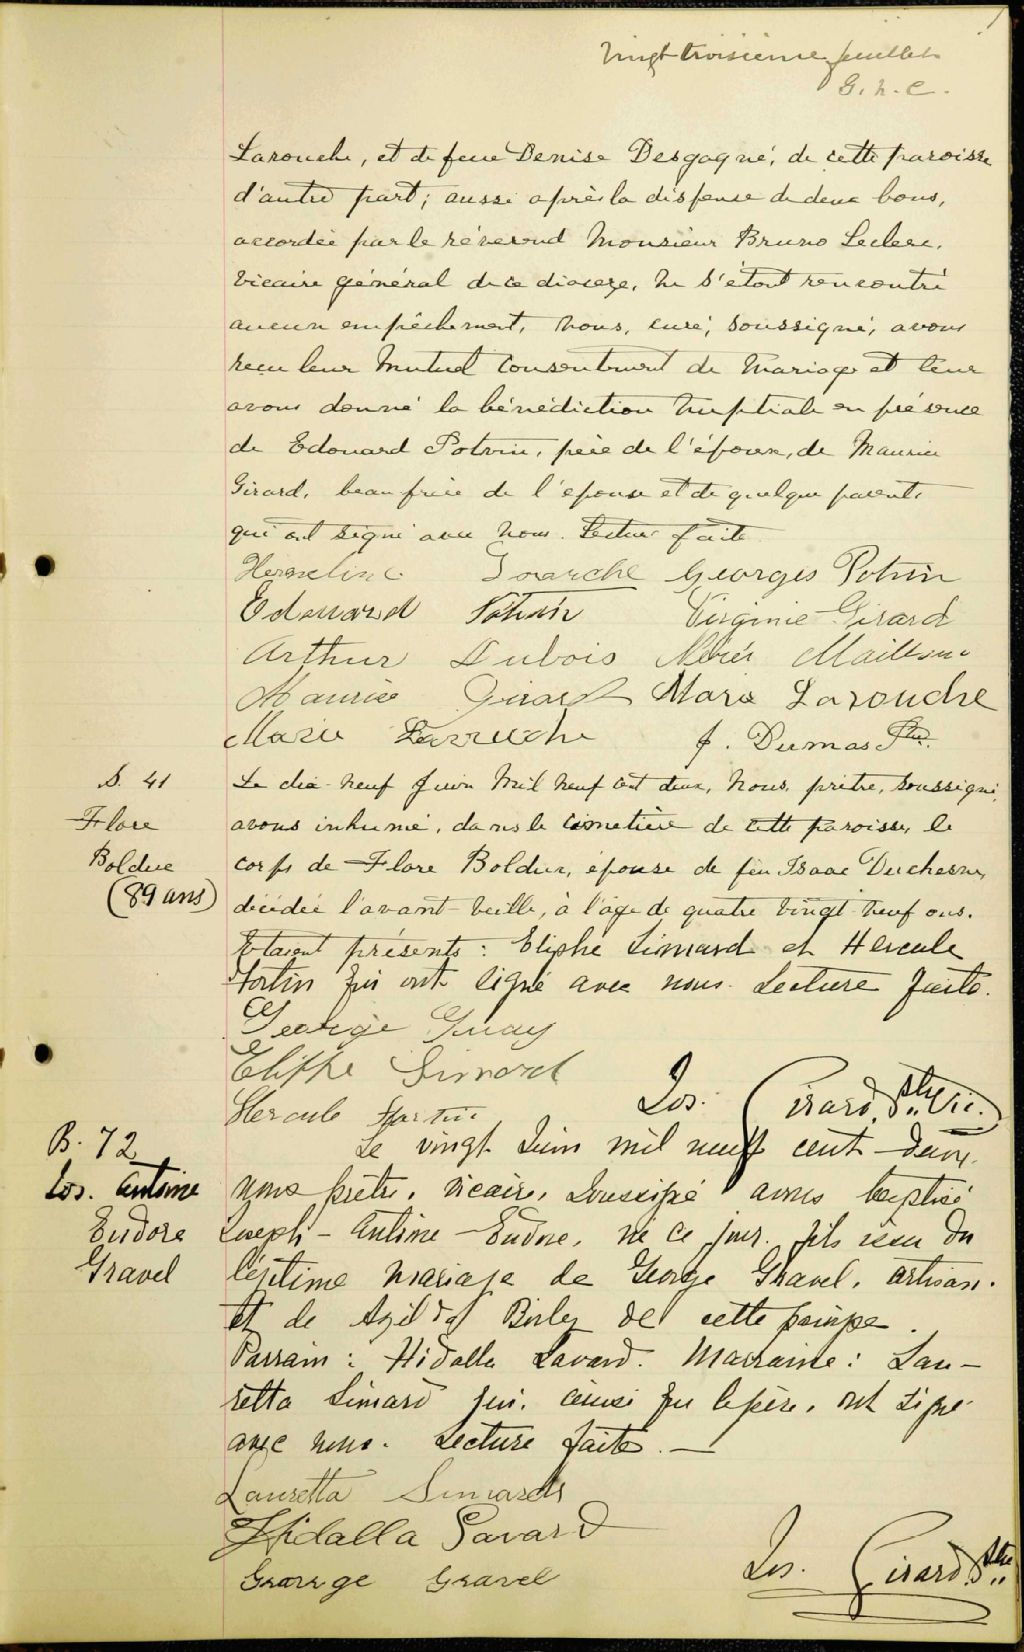 Vingt troisième feuillet
G. n. C.
Larouche, et de feue Denise Desgagné, de cette paroisse
d'autre part; aussi après la dispense de deux bans,
accordée par le révérend Monsieur Bruno Leclerc,
Vicaire général de ce diocèse, ne s'étant rencontré
aucun empêchement, nous, curé, soussigné, avons
reçu leur mutuel consentement de mariage et leur
avons donné la bénédiction nuptiale en présence
de Edouard Potvin, père de l'époux, de Maurice
Girard, beau frère de l'épouse et de quelque parents
qui ont signé avec nous. Lecture faite
Hermeline Larouche Georges Potvin
Edouard Potvin Virginie Girard
Arthur Dubois Maltais
Maurice Girard Marie Larouche
Marie Larouche J. Dumas Ptre.
S. 41
Flore
Bolduc
(89 ans)
Le dix-neuf Juin mil neuf cent deux, nous, prêtre, soussigné,
avons inhumé, dans le cimetière de cette paroisse, le
corps de Flore Bolduc, épouse de feu Isaac Duchesne,
décédée l'avant-veille, à l'âge de quatre vingt neuf ans.
Etaient présents: Eliphe Simard et Hercule
Fortin qui ont signé avec nous. Lecture faite.
George Guay
Eliphe Simard
Hercule Fortin Jos. Girard, Ptre Vic.
B. 72
Jos. Antoine
Eudore
Gravel
Le vingt Juin mil neuf cent deux,
nous prêtre, vicaire, soussigné avons baptisé
Joseph-Antoine-Eudore, né ce jour, fils issu du
légitime mariage de George Gravel, artisan.
et de de cette paroisse.
Parrain: Hidalla Savard. Marraine: Lau-
retta Simard qui, ainsi que le père, ont signé
avec nous. Lecture faite. —
Lauretta Simard
Hidalla Savard
George Gravel Jos. Girard, Ptre